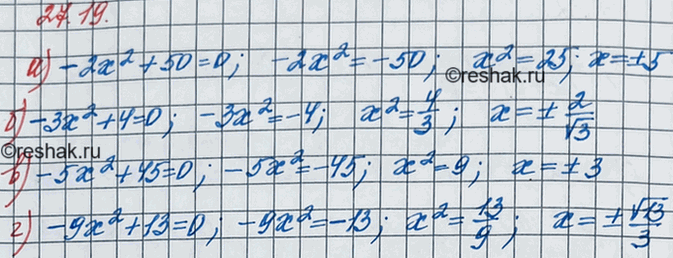 27.19.
а) -2x² + 50 = 0; -2x² = -50; x² = 25; x = ±5
©reshak.ru
б) -3x² + 4 = 0; -3x² = -4; x² = 4/3; x = ± 2/√3
©reshak.ru
в) -5x² + 45 = 0; -5x² = -45; x² = 9; x = ± 3
г) -9x² + 13 = 0; -9x² = -13; x² = 13/9; x = ± √13/3